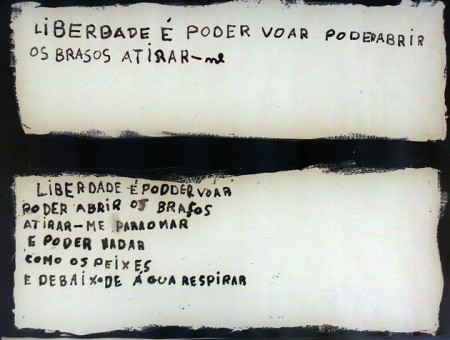 LiBERDADE É PODER VOAR PODERABRIR
OS BRASOS ATIRAR-me
LiBERDADE É PODDER VOAR
PODER ABRIR OS BRAÇOS
ATIRAR-ME PARAOMAR
E PODER NADAR
COMO OS PEIXES
E DEBAIXODE ÁGUA RESPIRAR